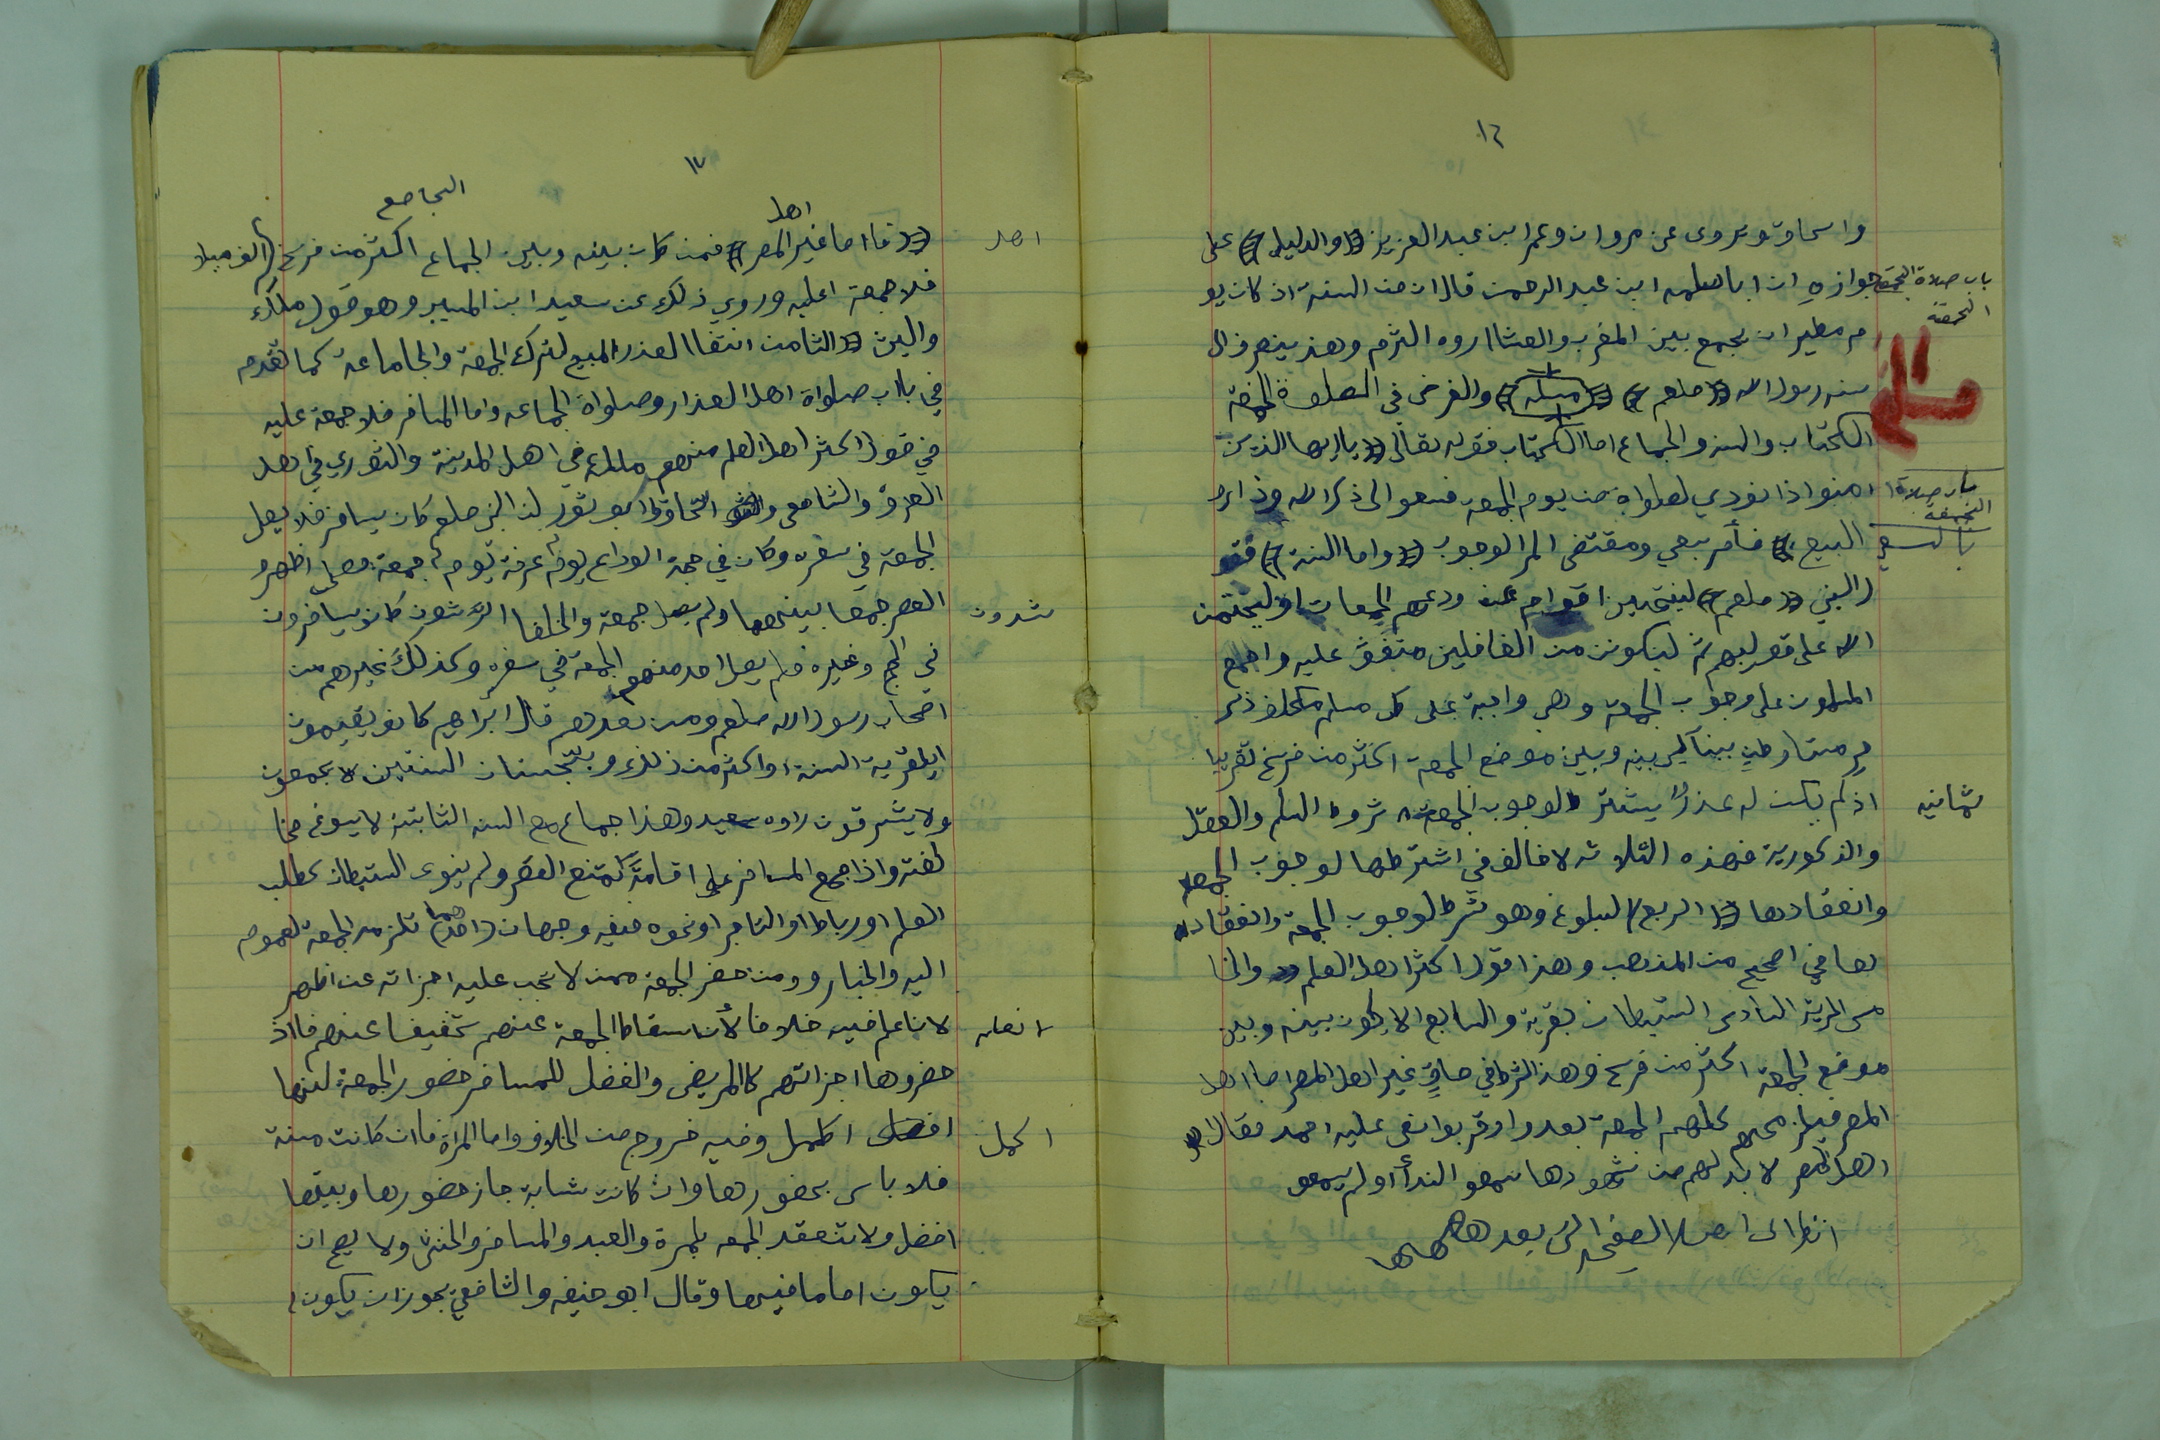 ١٦
واسحاق ويروى عن مروان وعمرا بن عبد العزيز والدليل على
باب صلاة الجمعة
الجمعة
جوازه ان ابا سلمه ابن عبد الرحمن قال ان من السنة اذ كان يو
م مطير ان يجمع بين المغرب والعشاا روه الاثرم وهذ ينصرف ال
سنه رسول الله صلعم مسله والفرض في الصلوة الجمعة
الكتاب والسنه والجماع اما الكتاب فقوله تعالى ياايها الذين
باب صلاة
الجمعة
امنوا اذا نودي لصلواة من يوم الجمعه فسعو الى ذكر الله وذارو
بالسعي
البيع فأمر بسعي ومقتضى المر الوجوب واما السنة فقو
ل النبي صلعم لينتهين اقوام عن ودعهم الجمعات او ليختمن
الله على قولبهم ثم ليكونن من الغافلين متفق عليه واجمع
المسلمون على وجوب الجمعه وهي واجبة على كل مسلم مكلف ذكر
حر مستاوطن ببنا ليس بينه وبين موضع الجمعة اكثر من فرسخ تقريبا
ثمانيه
اذ لم يكن له عذر يشتر ط لوجوب الجمعة شروط السلم والعقل
والذكورية فهذه الثلاثه لا خالف في اشترطها لوجوب الجمعه
وانعقادها الربع البلوغ وهو شرط لوجوب الجمعة وانعقاد
ها في اصحيح من المذهب وهذا قول اكثر اهل العلم والخا
مس الحرية السادس الستيطان بقرية والسابع الا يكون بينه وبين
موضع الجمعة اكثر من فرسخ وهذ الشرط في حق غير اهل المصر اما اهل
المصر فيلزمهم كلهم الجمعة بعدوا او قربوا نص عليه احمد فقال
اهل المصر لا بد لهم من شهودها سمعو الندأ أو لم يسمعو
انظر الى اصل الصفحه الى بعد هاها
١٧
اهل
الجامع
فااما غير المصر فمن كان بينه وبين الجماع اكثر من فرسخ
اهل
فلا جمعة اعليه وروي ذلك عن سعيد ابن المسيب وهو قول ملك
والليث الثامن انتقاا لعذر المبيح لترك الجمعة والجاماعة كما تقدم
في باب صلواة اهل العذار وصلواة الجماعه واما المسافر فلا جمعة عليه
في قول اكثر اهل العلم منهم مالك في اهل المدينة والثوري في اهل
العرق والشافعي واسحاق وابو ثور لن النبي صلعم كان يسافر فلا يصل
الجمعة في سفره وكان في حجة الوداع يوم عرفة يوم جمعة فصلى اظهر و
العصر جمعا بينهما ولم يصل جمعة والخلفا الرشون كانو يسافرون
شدون
في الحج وغيره فلم يصل احد منهم الجمعة في سفره وكذلك غيرهم من
اصحاب رسول الله صلعم ومن بعدهم قال ابراهيم كانو يقيمون
بالري السنة واكثر من ذلك وبسجستان السنتين لا يجمعون
ولا يشرقون راوه سعيد وهذا جماع مع السنه الثابتة لا يسوغ مخا
لفته واذا جمع المسافر على اقامة تمنع القصر ولم ينوى الستيطان كطلب
العلم او رباط او التاجر او نحوه ففيه وجهان احدهما تلزمه الجمعة لعموم
اليه والخبار وومن حضر الجمعة ممن لا تجب عليه اجزاته عن اظهر
لا نعلم
لاناعلم فيه خلافا لأن اسقاط الجمعة عنهم تخفيفا عنهم فااذ
حضروها اجزاتهم كالمريض والفضل للمسافر حضور الجمعة لنها
اكمل
افضل اكمل وفيه خروج من الخلاف واما المراة فاان كانت مسنة
فلا باس بحضورها وان كانت شابة جاز حضورها وبيتها
افضل ولا تنعقد الجمعه بلمرة والعبد والمسافر والخنثى ولا يصح ان
يكون اماما فيها وقال ابو حنيفه والشافعي يجوز ان يكون